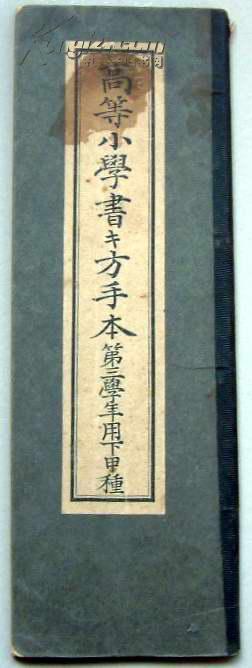 高等小學書キ方手本 第三學年用下甲種